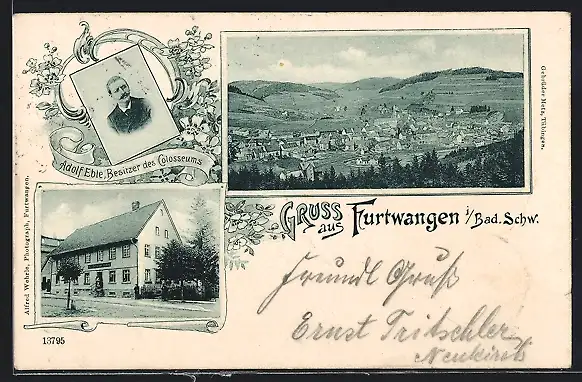 Adolf Eble, Besitzer des Colosseums
Gebrüder Metz, Tübingen.
Alfred Wehrle, Photograph, Furtwangen.
GRUSS
aus Furtwangen i/Bad. Schw.
Freundl Gruß
Ernst Tritschler
Neukirch
13795